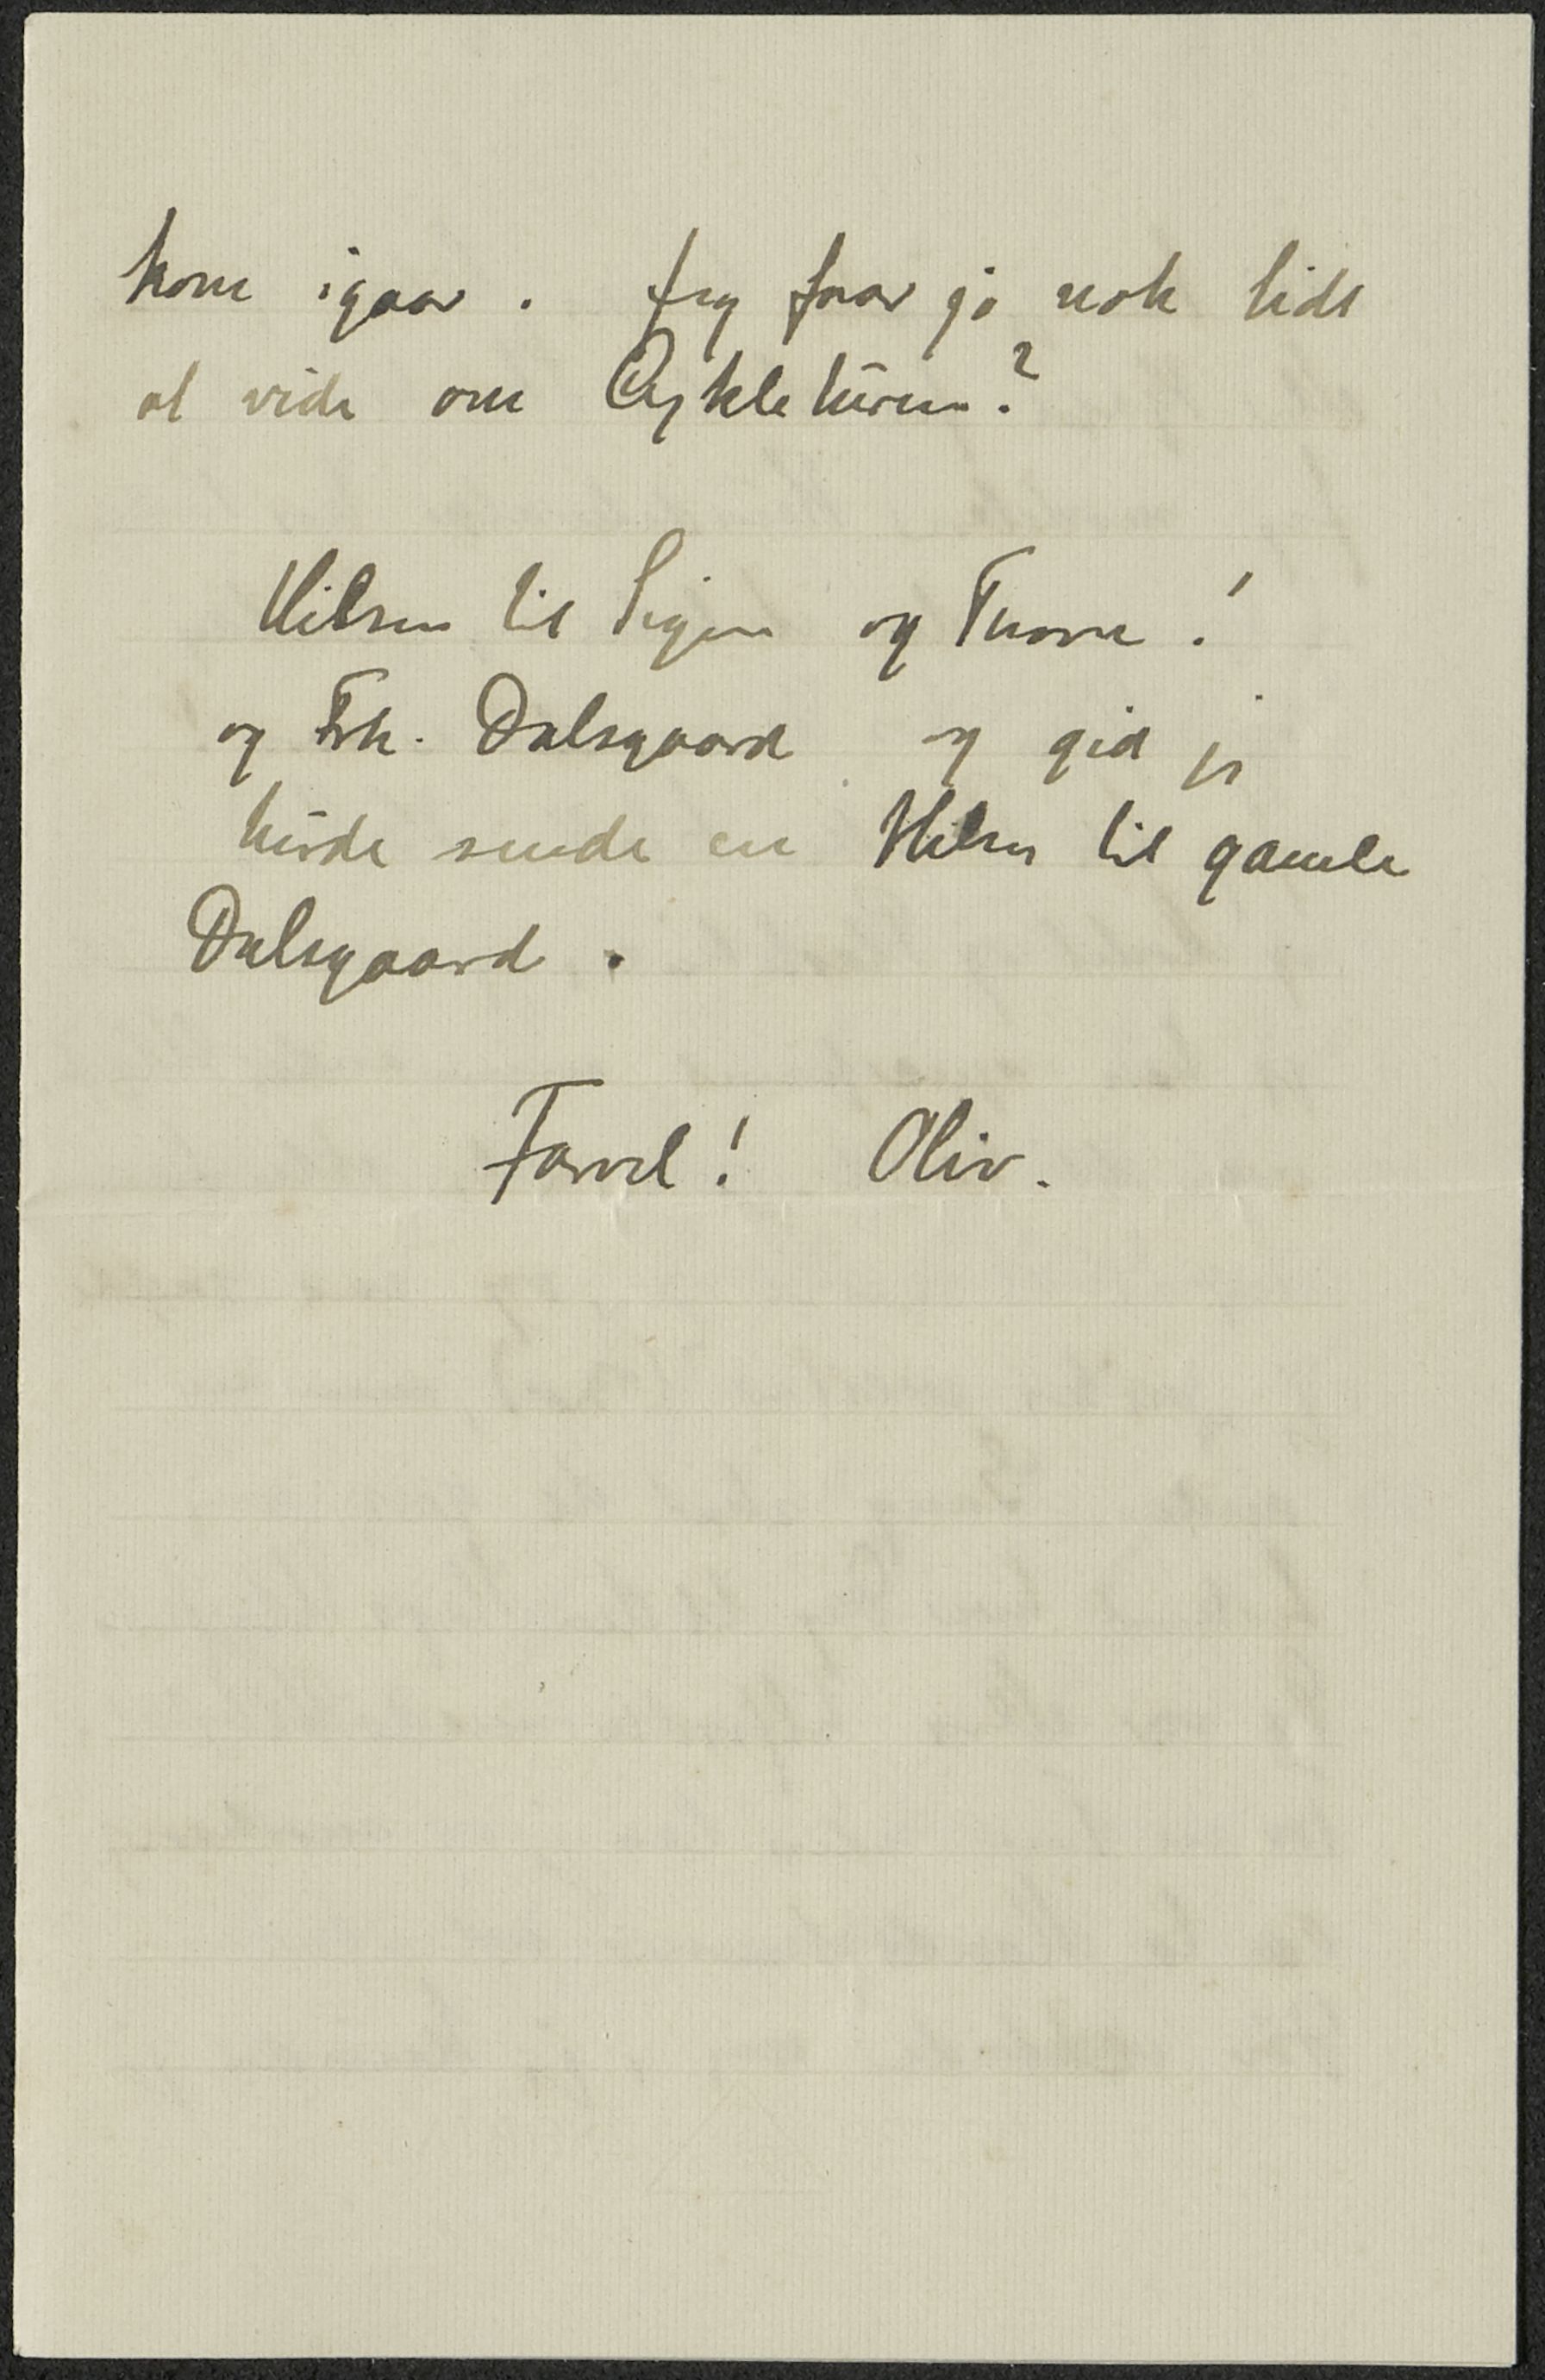 kom igaar. Jeg faar jo nok lidt
at vide om Cykleturen?
Hilsen til Signe og !
og Frk. Dalsgaard og gid jeg
turde sende en Hilsen til gamle
Dalsgaard.
Farvel! Oliv.